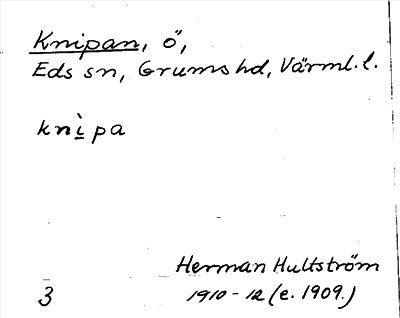 Knipan, ö,
Eds sn, Grums hd, Värml. l.
knì̲pa
Herman Hultström
3 1910-12 (e. 1909.)